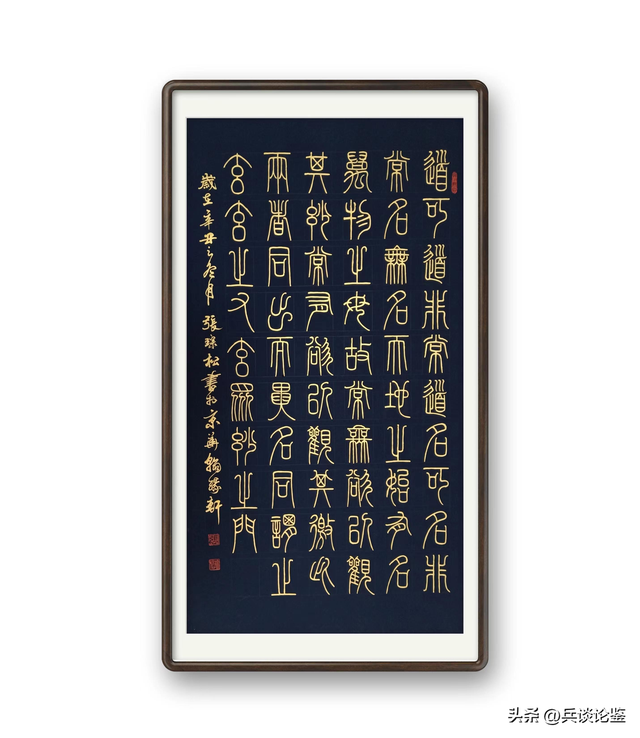 道可道非常道名可名非
常名無名天地之始有名
萬物之母故常無欲以觀
其妙常有欲以觀其徼此
兩者同出而異名同謂之
玄玄之又玄眾妙之門
歲在辛丑之月張琮松書於京華翰緣軒
头条 @兵谈论鉴